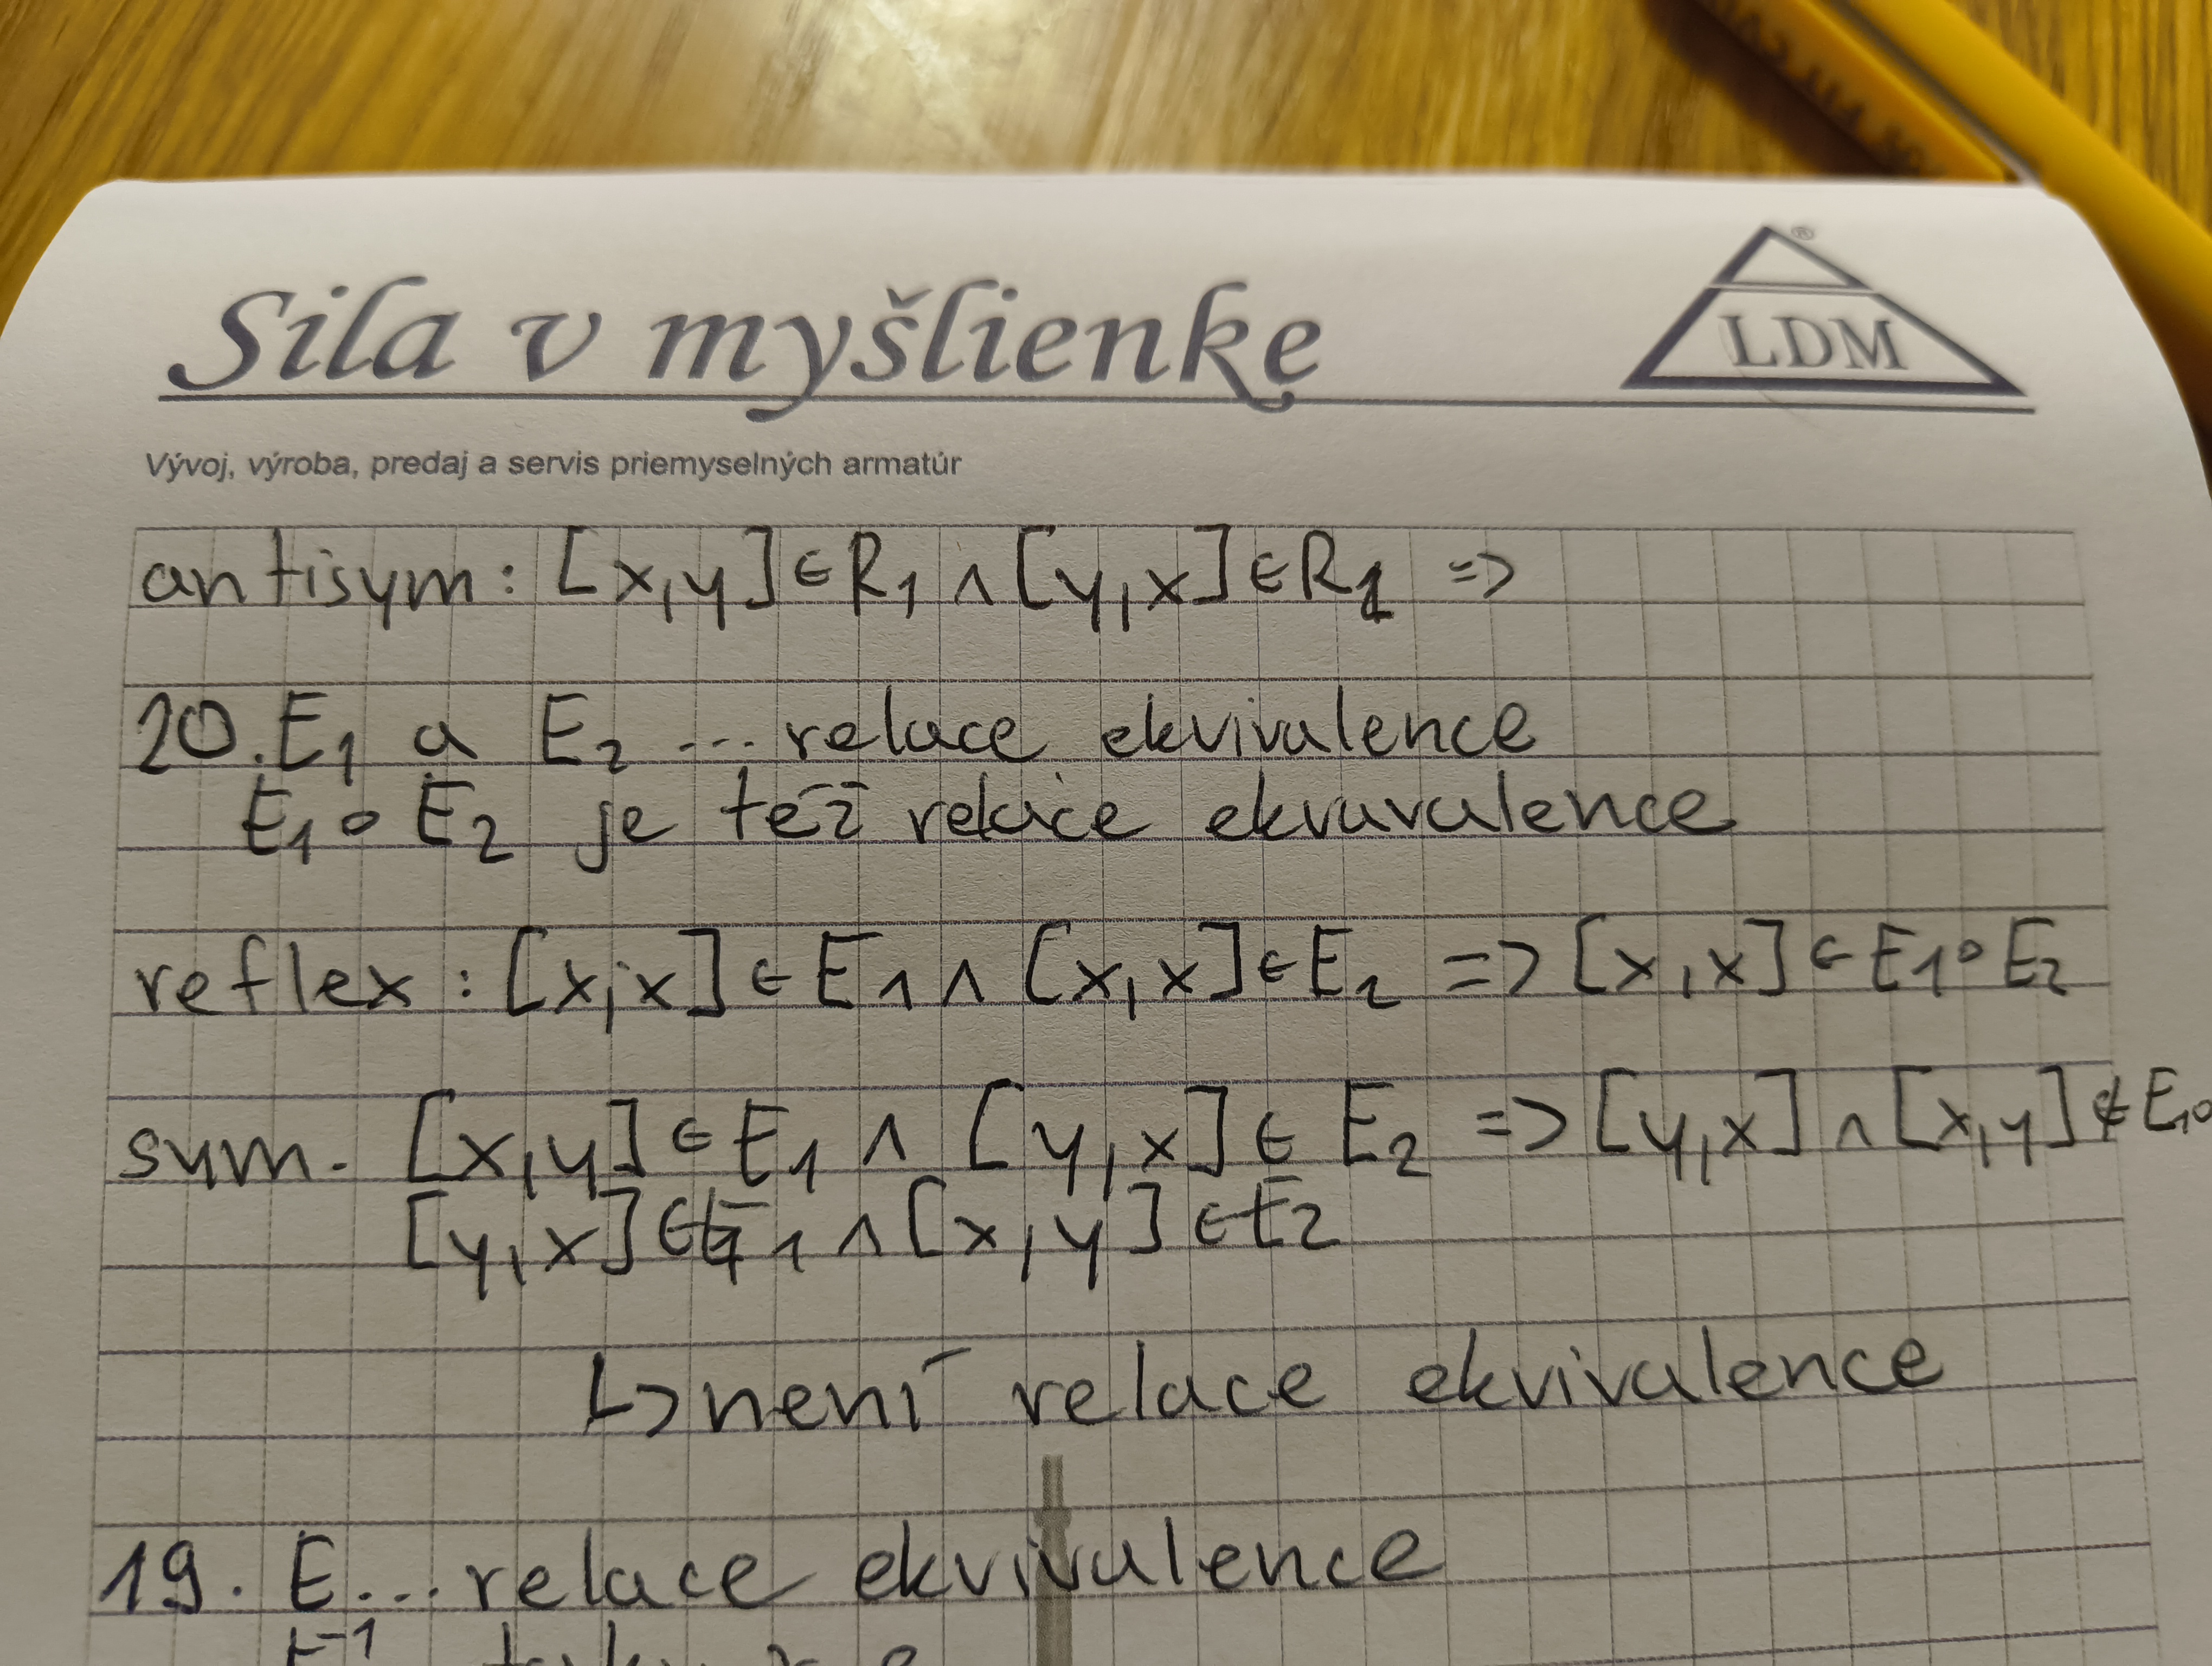 Sila v myšlienke
®
LDM
Vývoj, výroba, predaj a servis priemyselných armatúr
antisym: [x,y]∈R1 ∧ [y,x]∈R1 =>
20. E1 a E2 ... relace ekvivalence
E1∘E2 je též relace ekvuvulence
reflex: [x,x]∈E1 ∧ [x,x]∈E2 => [x,x]∈E1∘E2
sym. [x,y]∈E1 ∧ [y,x]∈E2 => [y,x] ∧ [x,y]∉E1∘
[y,x]∈E1 ∧ [x,y]∈E2
↳ není relace ekvivalence
19. E... relace ekvivalence